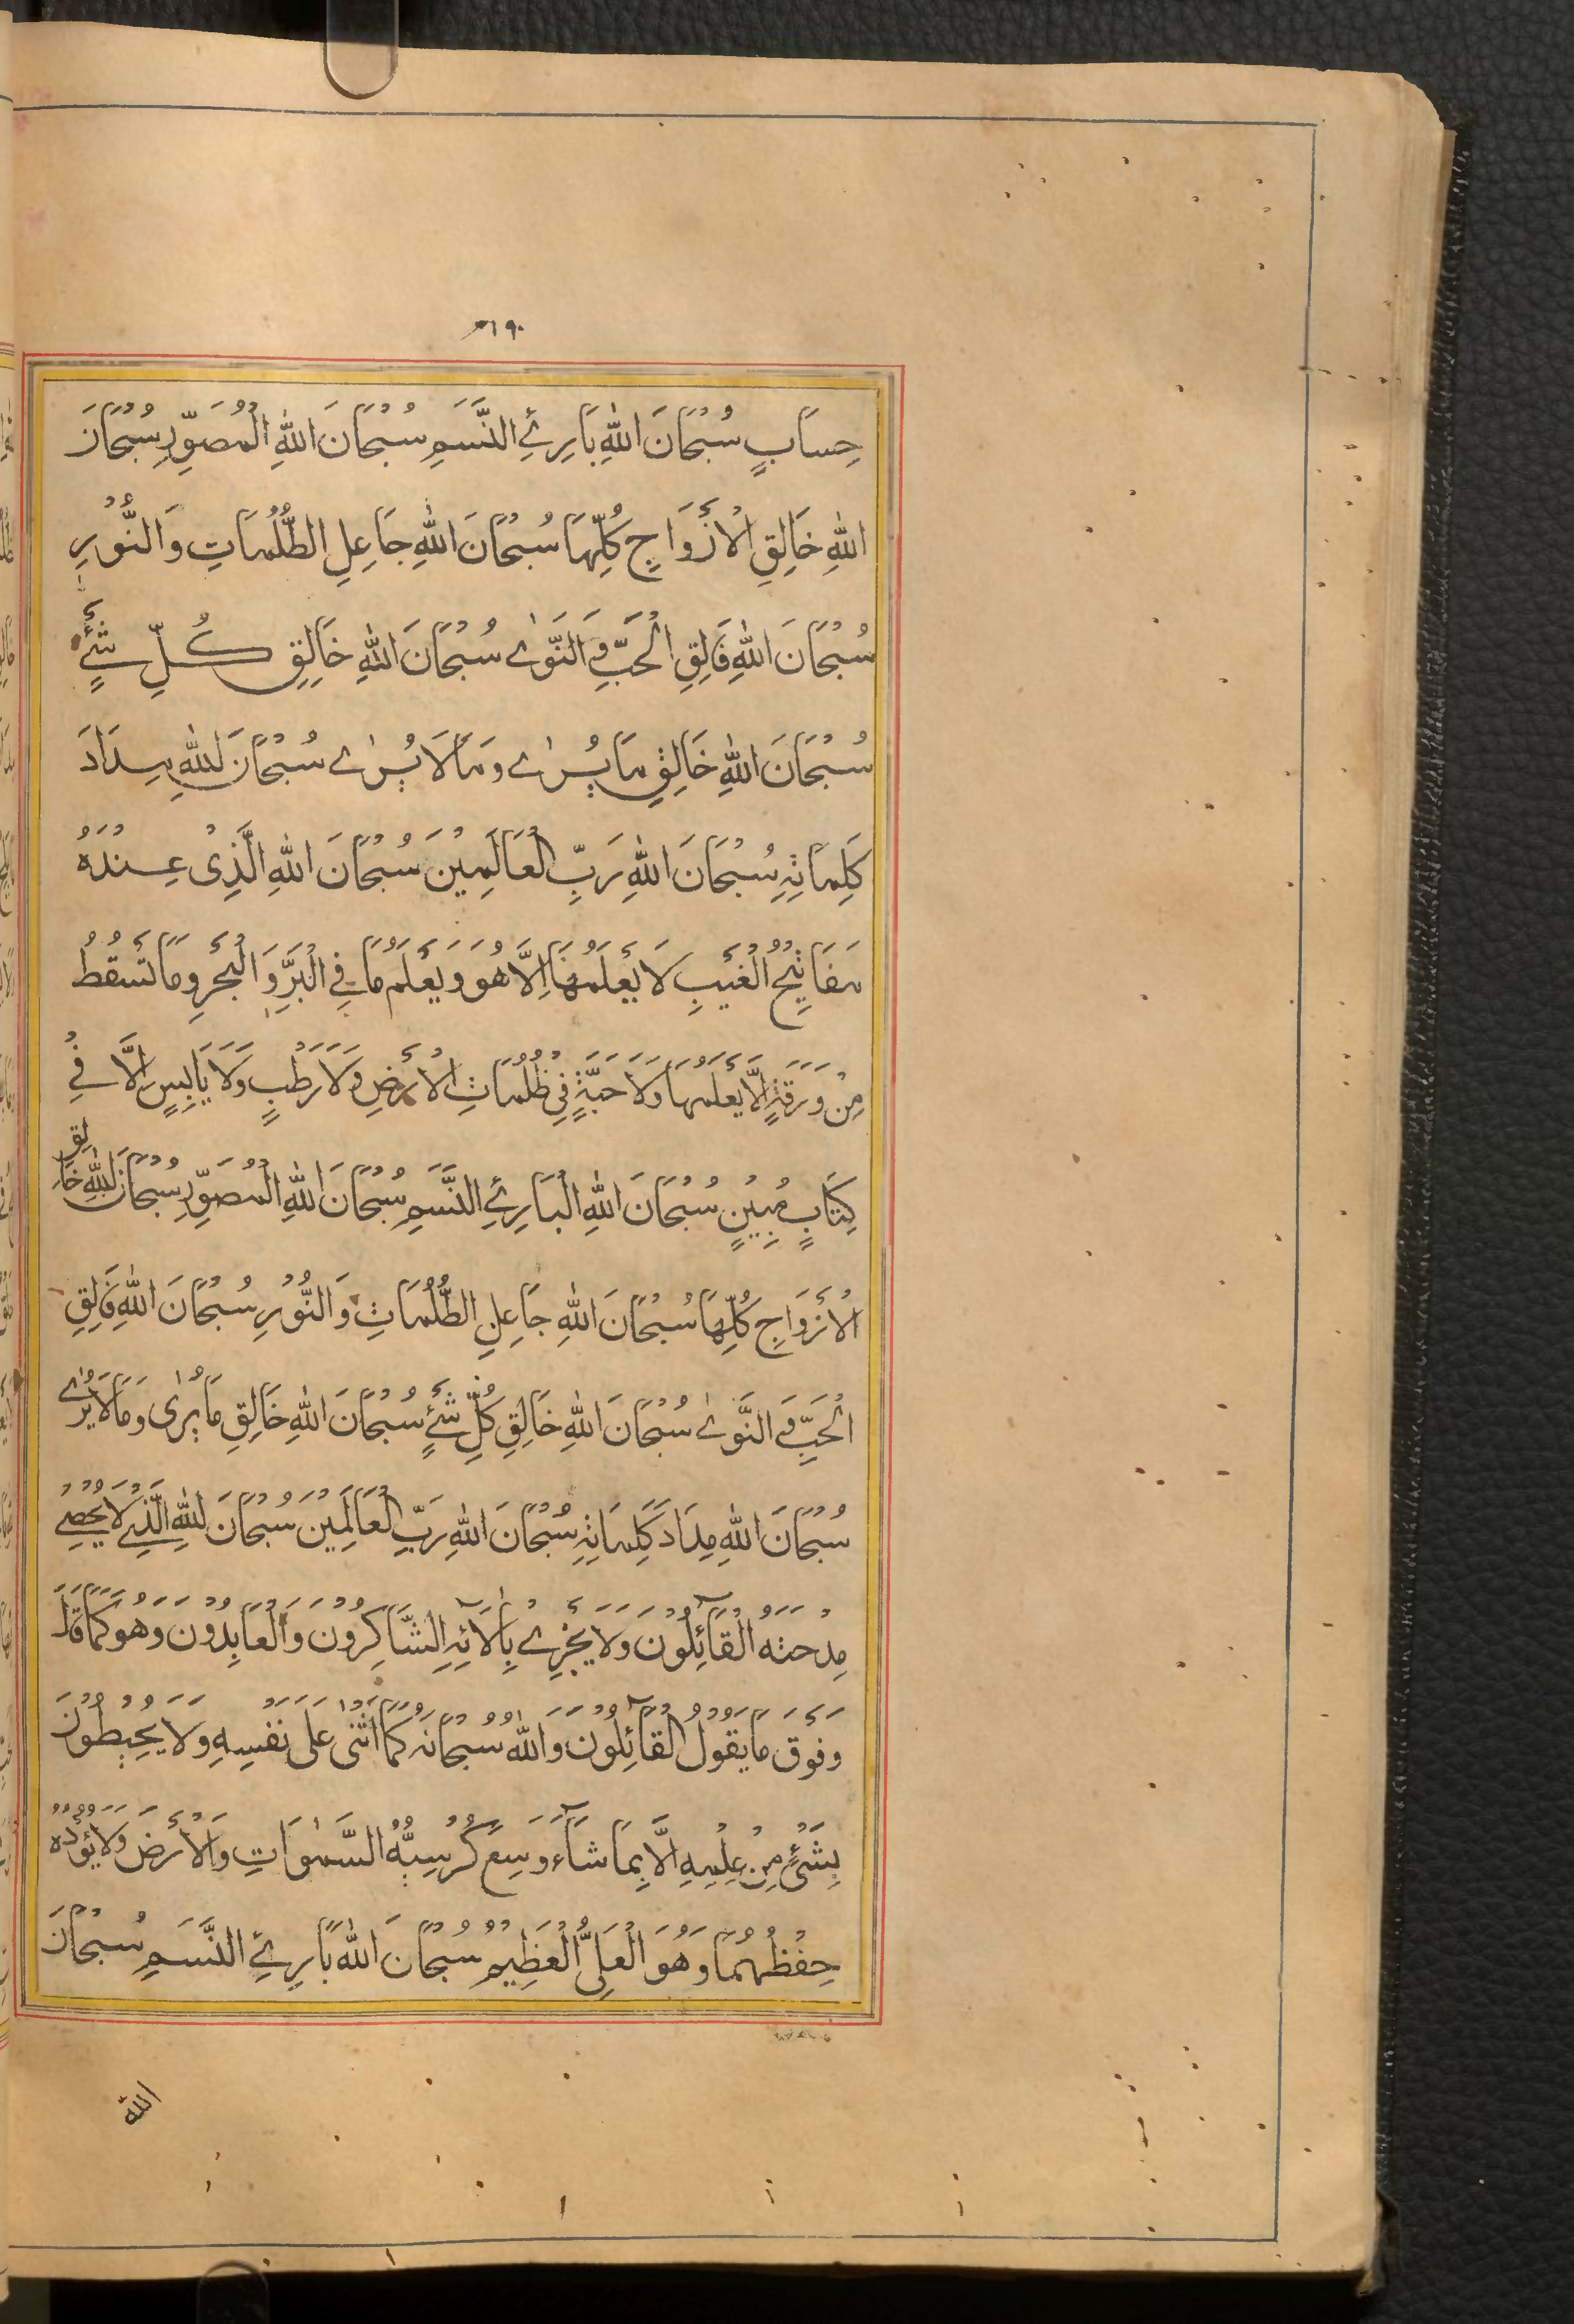 ١٩٠
حِسَابٍ سُبْحَانَ اللّٰهِ بَارِئِ النَّسَمِ سُبْحَانَ اللّٰهِ الْمُصَوِّرِ سُبْحَانَ
اللّٰهِ خَالِقِ الْأَزْوَاجِ كُلِّهَا سُبْحَانَ اللّٰهِ جَاعِلِ الظُّلُمَاتِ وَالنُّوْرِ
سُبْحَانَ اللّٰهِ فَالِقِ الْحَبِّ وَالنَّوٰى سُبْحَانَ اللّٰهِ خَالِقِ كُلِّ شَيْءٍ
سُبْحَانَ اللّٰهِ خَالِقِ مَا يُرٰى وَمَا لَا يُرٰى سُبْحَانَ اللّٰهِ مِدَادَ
كَلِمَاتِهِ سُبْحَانَ اللّٰهِ رَبِّ الْعَالَمِيْنَ سُبْحَانَ اللّٰهِ الَّذِيْ عِنْدَهُ
مَفَاتِيْحُ الْغَيْبِ لَا يَعْلَمُهَا اِلَّا هُوَ وَيَعْلَمُ مَا فِي الْبَرِّ وَالْبَحْرِ وَمَا تَسْقُطُ
مِنْ وَرَقَةٍ اِلَّا يَعْلَمُهَا وَلَا حَبَّةٍ فِيْ ظُلُمَاتِ الْأَرْضِ وَلَا رَطْبٍ وَلَا يَابِسٍ اِلَّا فِيْ
كِتَابٍ مُبِيْنٍ سُبْحَانَ اللّٰهِ الْبَارِئِ النَّسَمِ سُبْحَانَ اللّٰهِ الْمُصَوِّرِ سُبْحَانَ اللّٰهِ خَالِقِ
الْأَزْوَاجِ كُلِّهَا سُبْحَانَ اللّٰهِ جَاعِلِ الظُّلُمَاتِ وَالنُّوْرِ سُبْحَانَ اللّٰهِ فَالِقِ
الْحَبِّ وَالنَّوٰى سُبْحَانَ اللّٰهِ خَالِقِ كُلِّ شَيْءٍ سُبْحَانَ اللّٰهِ خَالِقِ مَا يُرٰى وَمَا لَا يُرٰى
سُبْحَانَ اللّٰهِ مِدَادَ كَلِمَاتِهِ سُبْحَانَ اللّٰهِ رَبِّ الْعَالَمِيْنَ سُبْحَانَ اللّٰهِ الَّذِيْ لَا يُحْصِيْ
مِدْحَتَهُ الْقَآئِلُوْنَ وَلَا يَجْزِيْ بِآلَائِهِ الشَّاكِرُوْنَ وَالْعَابِدُوْنَ وَهُوَ كَمَا قَالَ
وَفَوْقَ مَا يَقُوْلُ الْقَآئِلُوْنَ وَاللّٰهُ سُبْحَانَهُ كَمَا اَثْنٰى عَلٰى نَفْسِهِ وَلَا يُحِيْطُوْنَ
بِشَيْءٍ مِنْ عِلْمِهِ اِلَّا بِمَا شَآءَ وَسِعَ كُرْسِيُّهُ السَّمٰوَاتِ وَالْأَرْضَ وَلَا يَؤُدُهُ
حِفْظُهُمَا وَهُوَ الْعَلِيُّ الْعَظِيْمُ سُبْحَانَ اللّٰهِ بَارِئِ النَّسَمِ سُبْحَانَ
اللّٰهِ